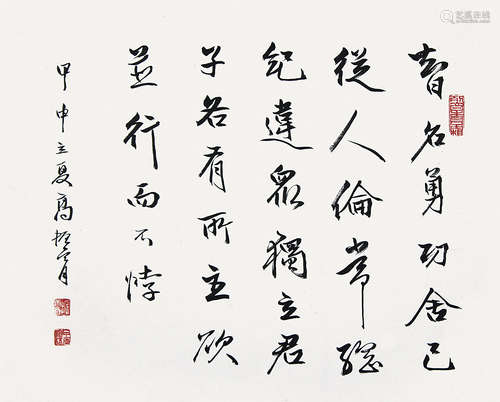 智名勇功舍己
從人倫常綱
紀違眾獨立君
子各有所主欲
並行而不悖
甲申立夏高振霄